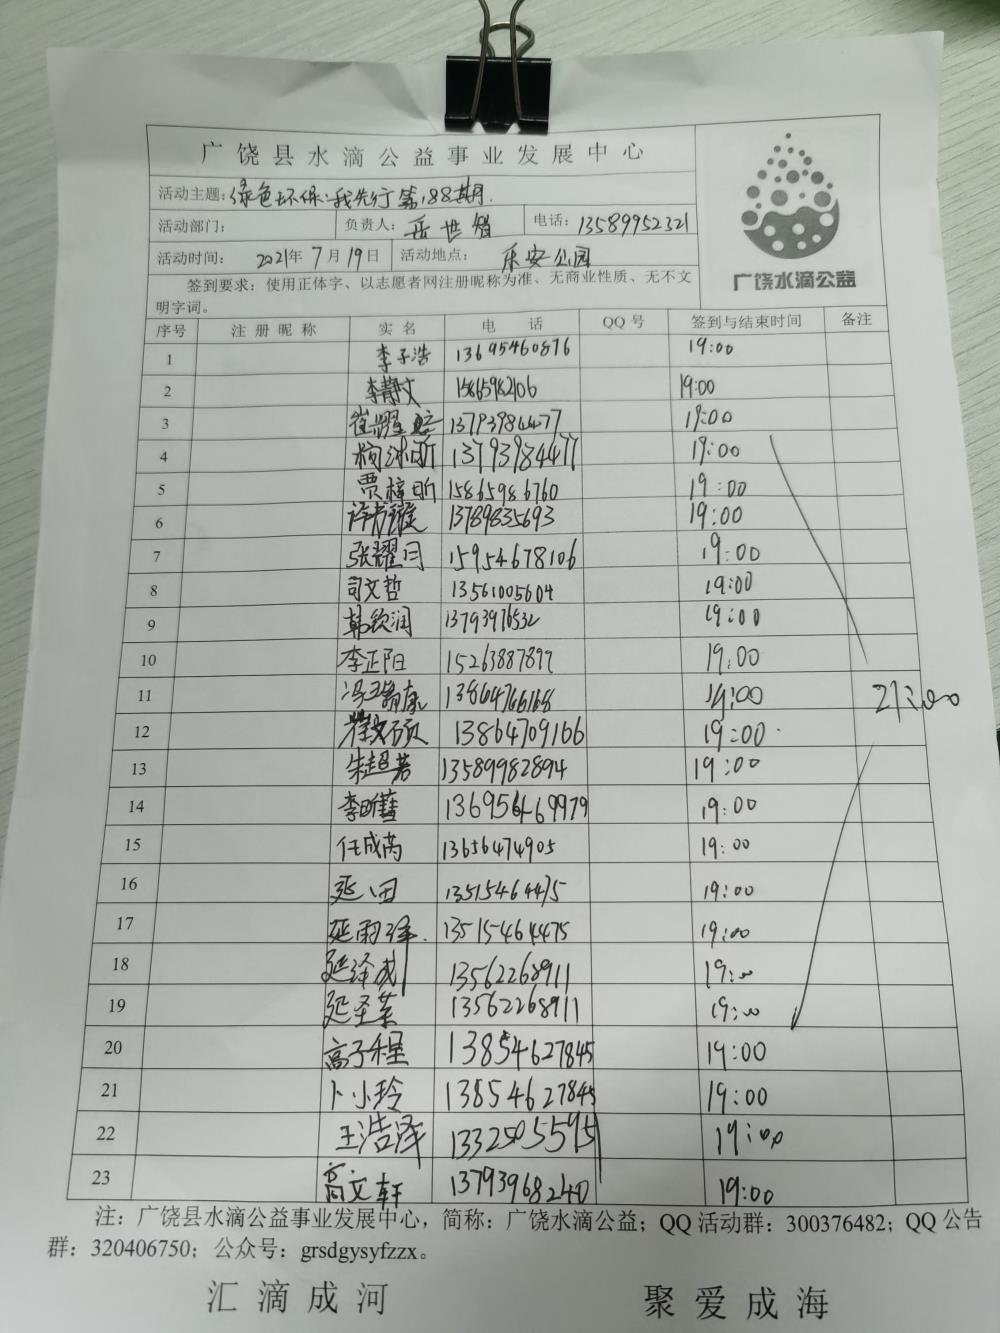 广饶县水滴公益事业发展中心
活动主题:绿色环保·我先行第188期.
活动部门: 负责人:岳世智 电话:13589952321
活动时间: 2021年7月19日 活动地点: 乐安公园
签到要求:使用正体字、以志愿者网注册昵称为准、无商业性质、无不文
明字词。
广饶水滴公益
序号 注册昵称 实名 电话 QQ号 签到与结束时间 备注
1 李子浩 13695460876 19:00
2 李静文 15865982106 19:00
3 13793984477 19:00
4 13793984477 19:00
5 贾梓昕 15865986760 19:00
6 13789835693 19:00
7 张耀月 15954678106 19:00
8 司文哲 13561005604 19:00
9 韩钦润 13793976532 19:00
10 李正阳 15263887897 19:00
11 13864766168 19:00
21:00
12 13864709166 19:00
13 朱超若 13589982894 19:00
14 19:00
15 任成芮 13656474905 19:00
16 13515464475 19:00
17 延雨泽. 13515464475 19:00
18 延泽成 13562268911 19:00
19 延圣荣 13562268911 19:00
20 高子程 13854627845 19:00
21 卜小玲 13854627845 19:00
22 王浩泽 13325055951 19:00
23 高文轩 13793968240 19:00
注:广饶县水滴公益事业发展中心,简称:广饶水滴公益;QQ活动群:300376482;QQ公告
群:320406750;公众号:grsdgysyfzzx。
汇滴成河 聚爱成海